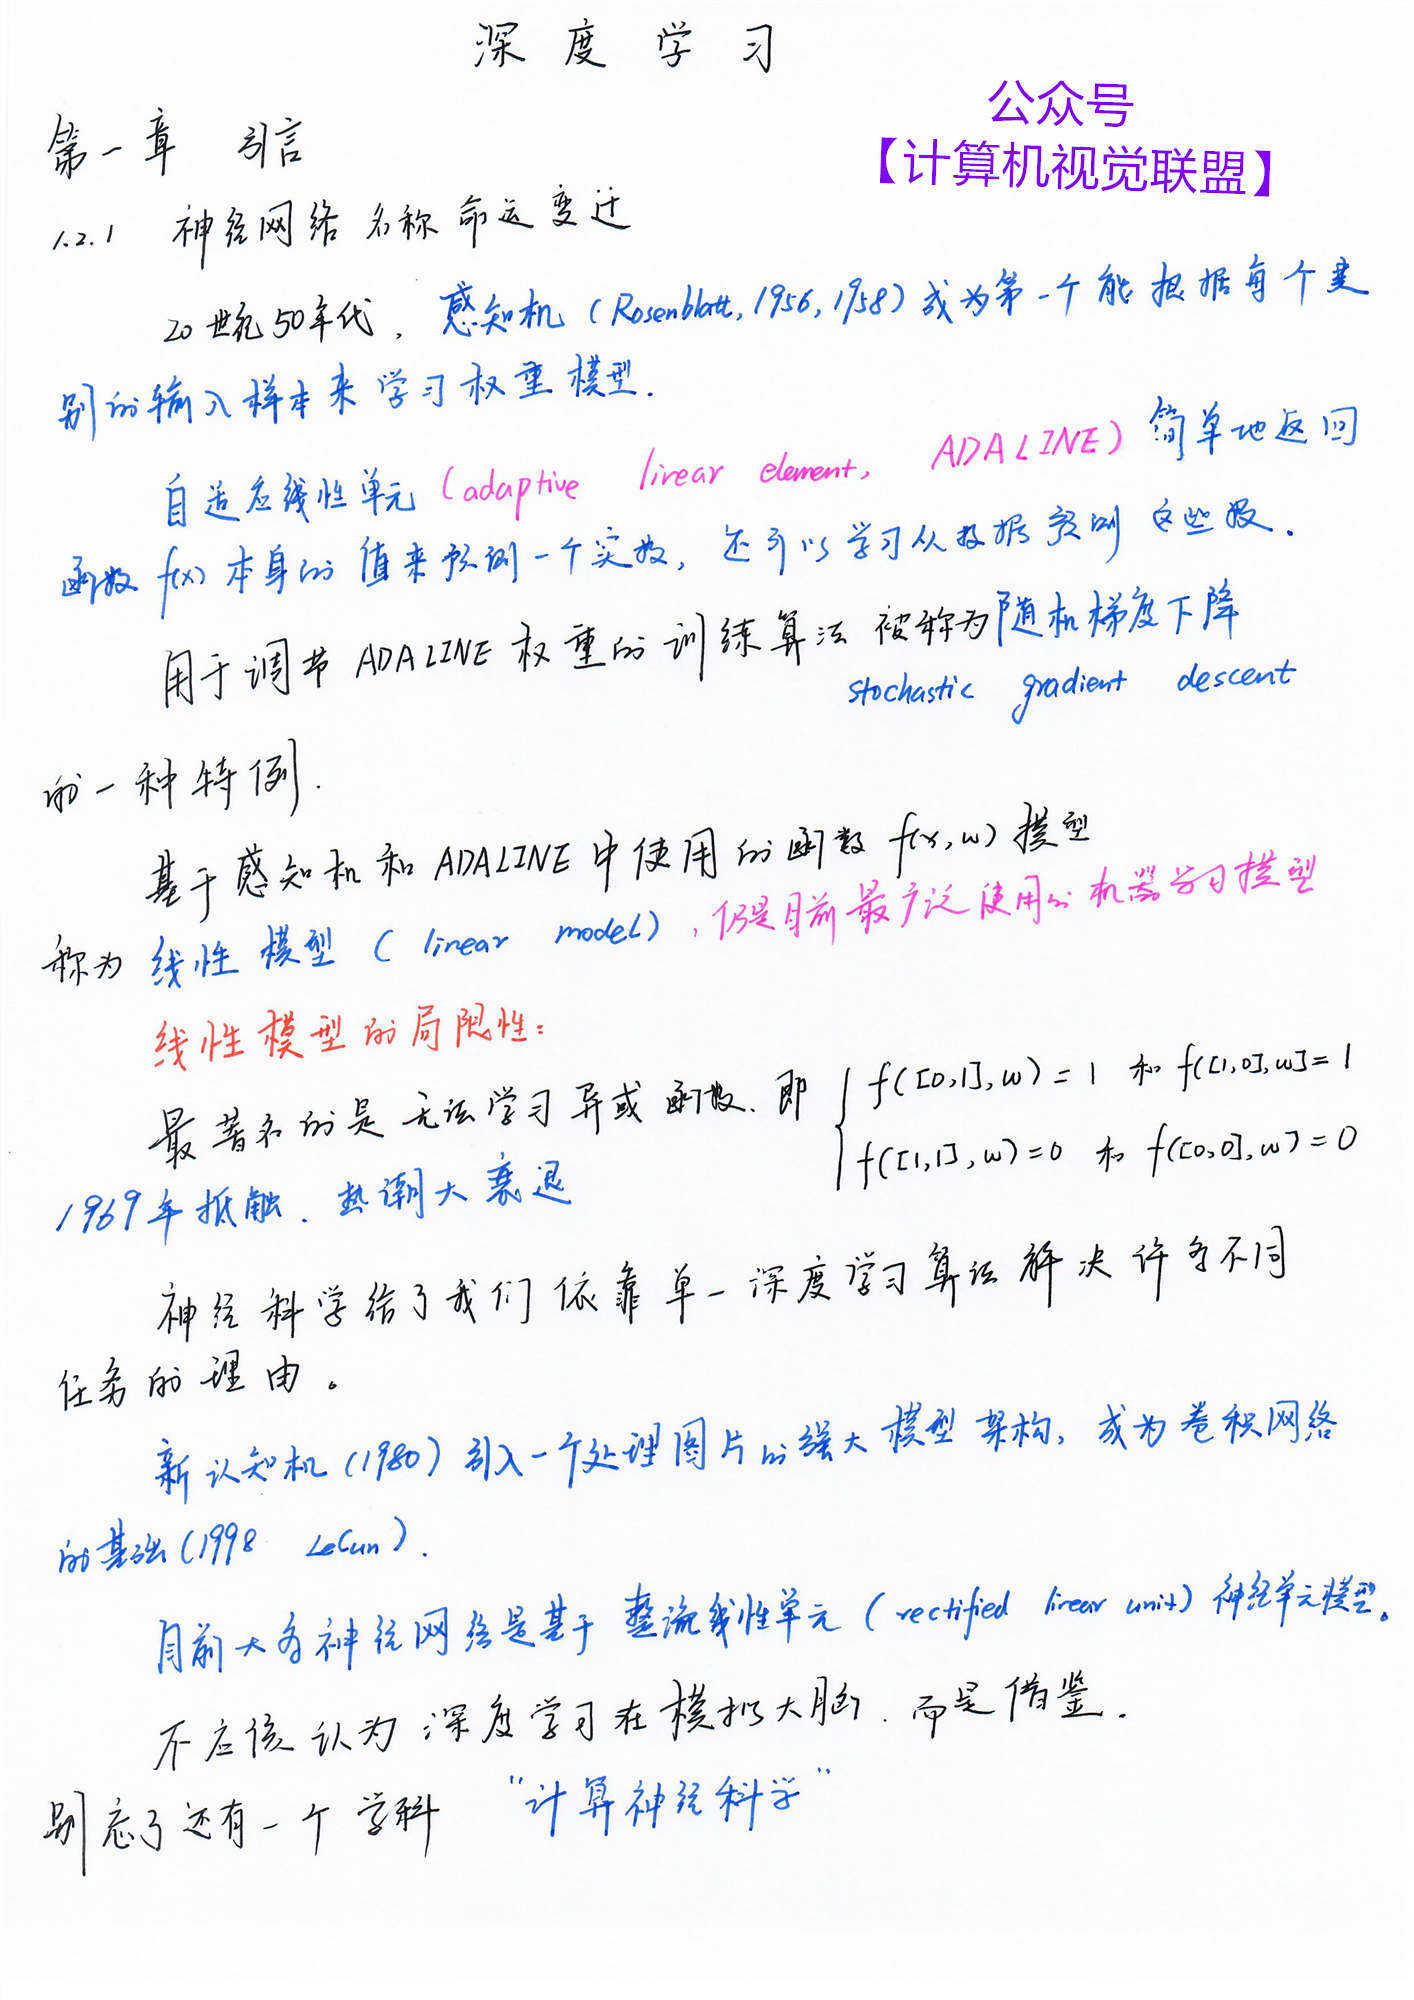 深度学习
公众号
【计算机视觉联盟】
第一章 引言
1.2.1 神经网络名称命运变迁
20世纪50年代, 感知机 (Rosenblatt, 1956, 1958) 成为第一个能根据每个类
别的输入样本来学习权重模型.
自适应线性单元 (adaptive linear element, ADALINE) 简单地返回
函数 f(x) 本身的值来预测一个实数, 还可以学习从数据预测这些数.
用于调节 ADALINE 权重的训练算法被称为随机梯度下降
stochastic gradient descent
的一种特例.
基于感知机和ADALINE中使用的函数 f(x,w) 模型
称为线性模型 (linear model), 仍是目前最广泛使用的机器学习模型
线性模型的局限性:
最著名的是无法学习异或函数. 即 { f([0,1],w)=1 和 f([1,0],w]=1
f([1,1],w)=0 和 f([0,0],w)=0
1969年抵触. 热潮大衰退
神经科学给了我们依靠单一深度学习算法解决许多不同
任务的理由。
新认知机(1980) 引入一个处理图片的强大模型架构, 成为卷积网络
的基础(1998 LeCun).
目前大多神经网络是基于整流线性单元 (rectified linear unit) 神经单元模型。
不应该认为深度学习在模拟大脑. 而是借鉴.
别忘了还有一个学科 "计算神经科学"